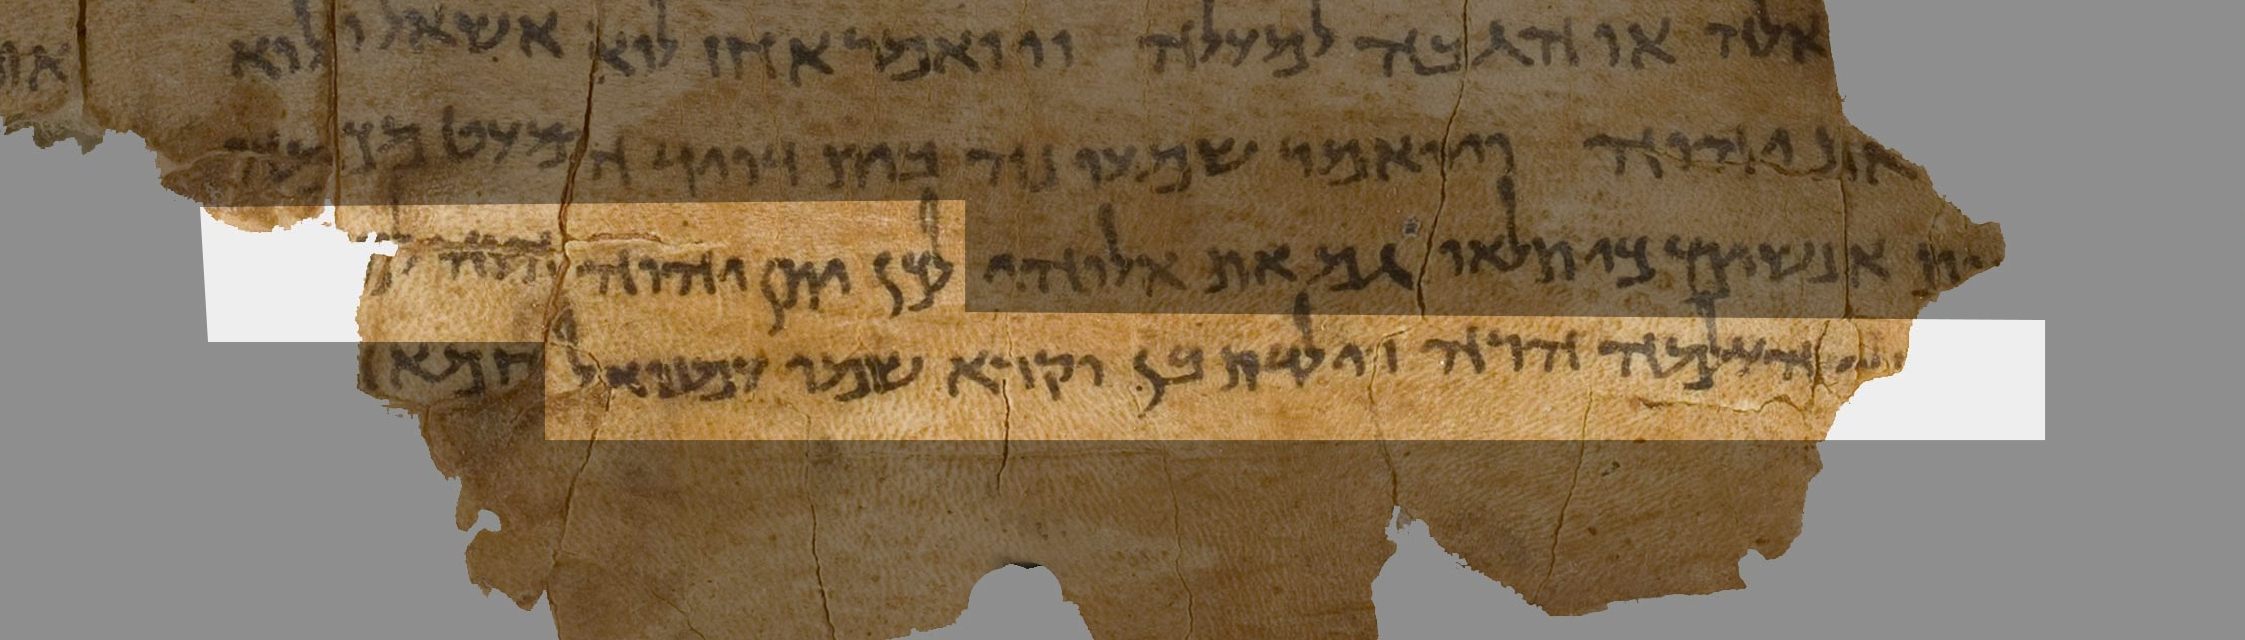 שאלה או הגבה למעלה ויואמר אחז לוא אשאל ולוא
את יהוה ויואמר שמעו נא בית דויד המעט מכם
אנשים כי תלאו גם את אלוהי לכן יתן יהוה
העלמה הרה וילדת בן וקרא שמו עמנואל חמא